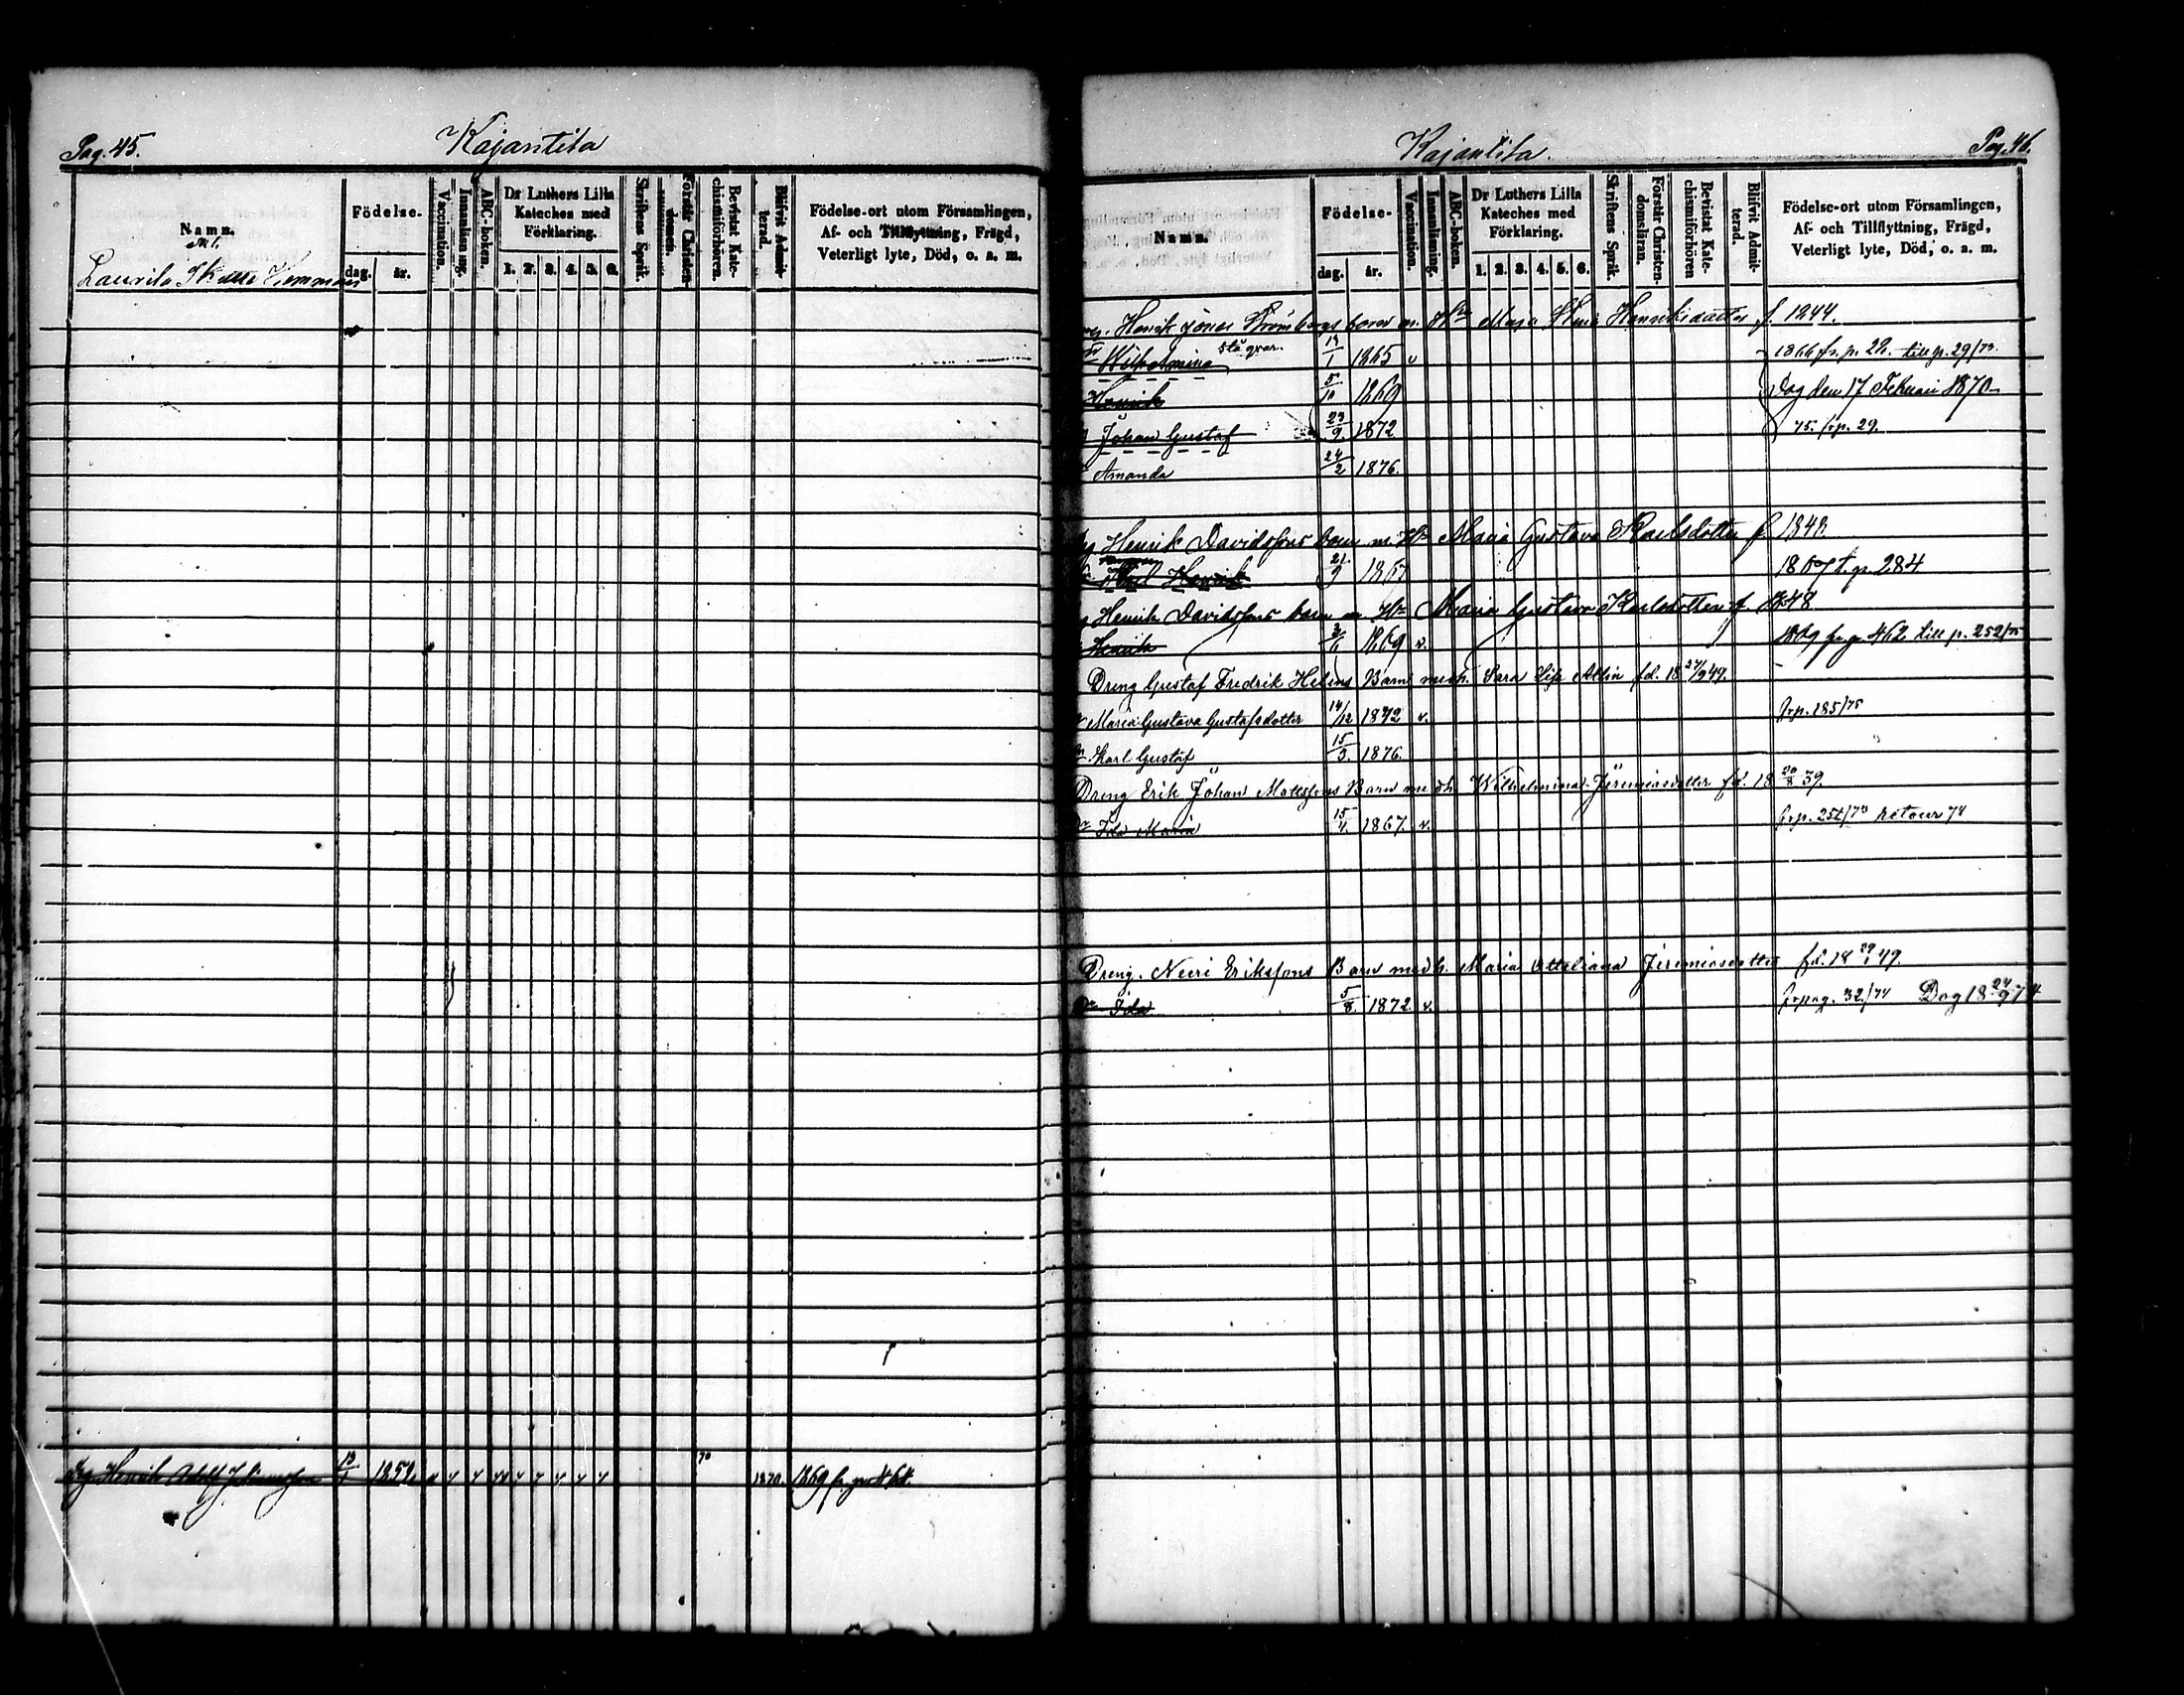 Pag. 45.
Kajantila
Namn.
№ 1.
Födelse.
dag.
år.
Vaccination.
Innanläsning.
ABC-boken.
Dr Luthers Lilla Kateches med Förklaring.
1. 2. 3. 4. 5. 6.
Skriftens Språk.
Förstår Christendomsläran.
Bevistat Katechismiförhören.
Blifvit Admitterad.
Födelse-ort utom Församlingen, Af- och Tillflyttning, Frägd, Veterligt lyte, Död, o. a. m.
Laurila Skatte Hemman
Henrik Adolf 13/1 1852. 70 1870. 1869 fr. p. 464.
Kajantila.
Pag. 46.
Namn.
Födelse-
dag.
år.
Vaccination.
Innanläsning.
ABC-boken.
Dr Luthers Lilla Kateches med Förklaring.
1. 2. 3. 4. 5. 6.
Skriftens Språk.
Förstår Christendomsläran.
Bevistat Katechismiförhören
Blifvit Admitterad.
Födelse-ort utom Församlingen, Af- och Tillflyttning, Frägd, Veterligt lyte, Död, o. a. m.
Henrik Jonas Strömbergs barn m. Hu Maja Stina Henriksdotter f. 1844.
Wilhelmina 19/1 1865 v 1866 fr. p. 22. till p. 29/73.
Henrik 5/10 1869 Dog den 17 Februari 1870
Johan Gustaf 23/9 1872 75. fr p. 29.
Amanda 24/2 1876.
Henrik Davidssons barn m. Hu Maria Gustava Karlsdotter f. 1848.
Karl Henrik 21/9 1867 1867 f. p. 284
Henrik Davidssons barn m Hu Maria Gustava Karlsdotter f. 1848
Henrik 3/6 1869 v. 1869 fr p. 462 till p. 252/75
Dreng Gustaf Fredrik Heléns Barn med h. Sara Lisa Allin fd. 18 27/9 47.
Maria Gustava Gustafsdotter 14/12 1872 v. frp. 185/75
Karl Gustaf 15/3. 1876.
Dreng Erik Johan Matssons Barn med h. Wilhelmina Jeremiasdotter fd. 18 20/8 39.
Dr Ida Maria 15/4. 1867. v. frp. 252/73 retour 74
Dreng. Neeri Erikssons Barn med h. Maria Otteliana Jeremiasdotter fd. 18 29/1 49.
Dr Ida 5/8. 1872. v. frpag. 32./74 Dog 18 24/9 74